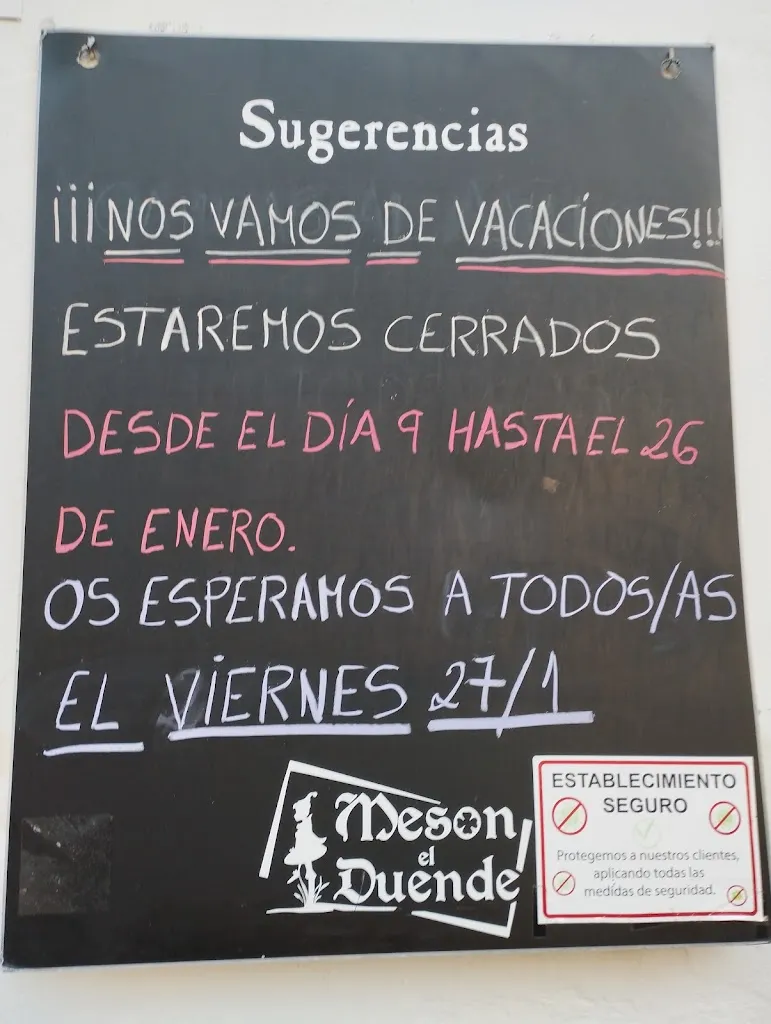 Sugerencias
¡¡¡NOS VAMOS DE VACACIONES!!!
ESTAREMOS CERRADOS
DESDE EL DÍA 9 HASTA EL 26
DE ENERO.
OS ESPERAMOS A TODOS/AS
EL VIERNES 27/1
Meson
el
Duende
ESTABLECIMIENTO
SEGURO
Protegemos a nuestros clientes,
aplicando todas las
medidas de seguridad.